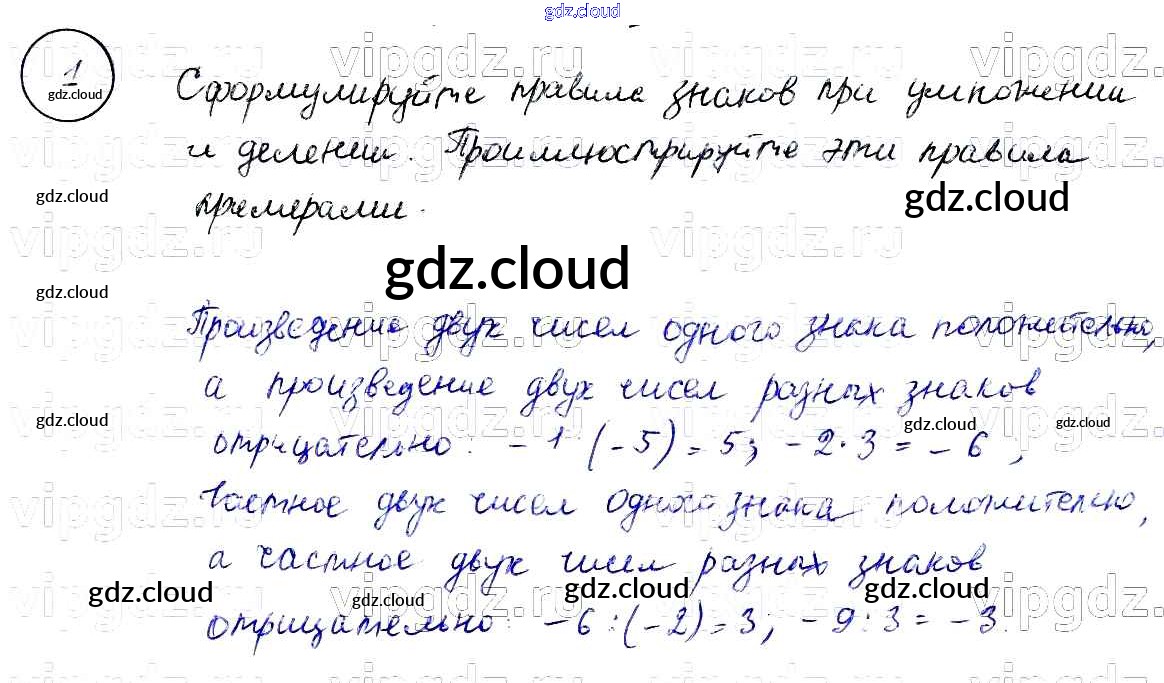 gdz.cloud
1
gdz.cloud
Сформулируйте правила знаков при умножении
и делении. Проиллюстрируйте эти правила
gdz.cloud
gdz.cloud
примерами.
gdz.cloud
gdz.cloud
Произведение двух чисел одного знака положительно,
а произведение двух чисел разных знаков
gdz.cloud
gdz.cloud
gdz.cloud
отрицательно: -1·(-5)=5; -2·3=-6,
Частное двух чисел одного знака положительно,
а частное двух чисел разных знаков
gdz.cloud
gdz.cloud
gdz.cloud
gdz.cloud
отрицательно: -6:(-2)=3; -9:3=-3.
vipgdz.ru vipgdz.ru vipgdz.ru vipgdz.ru